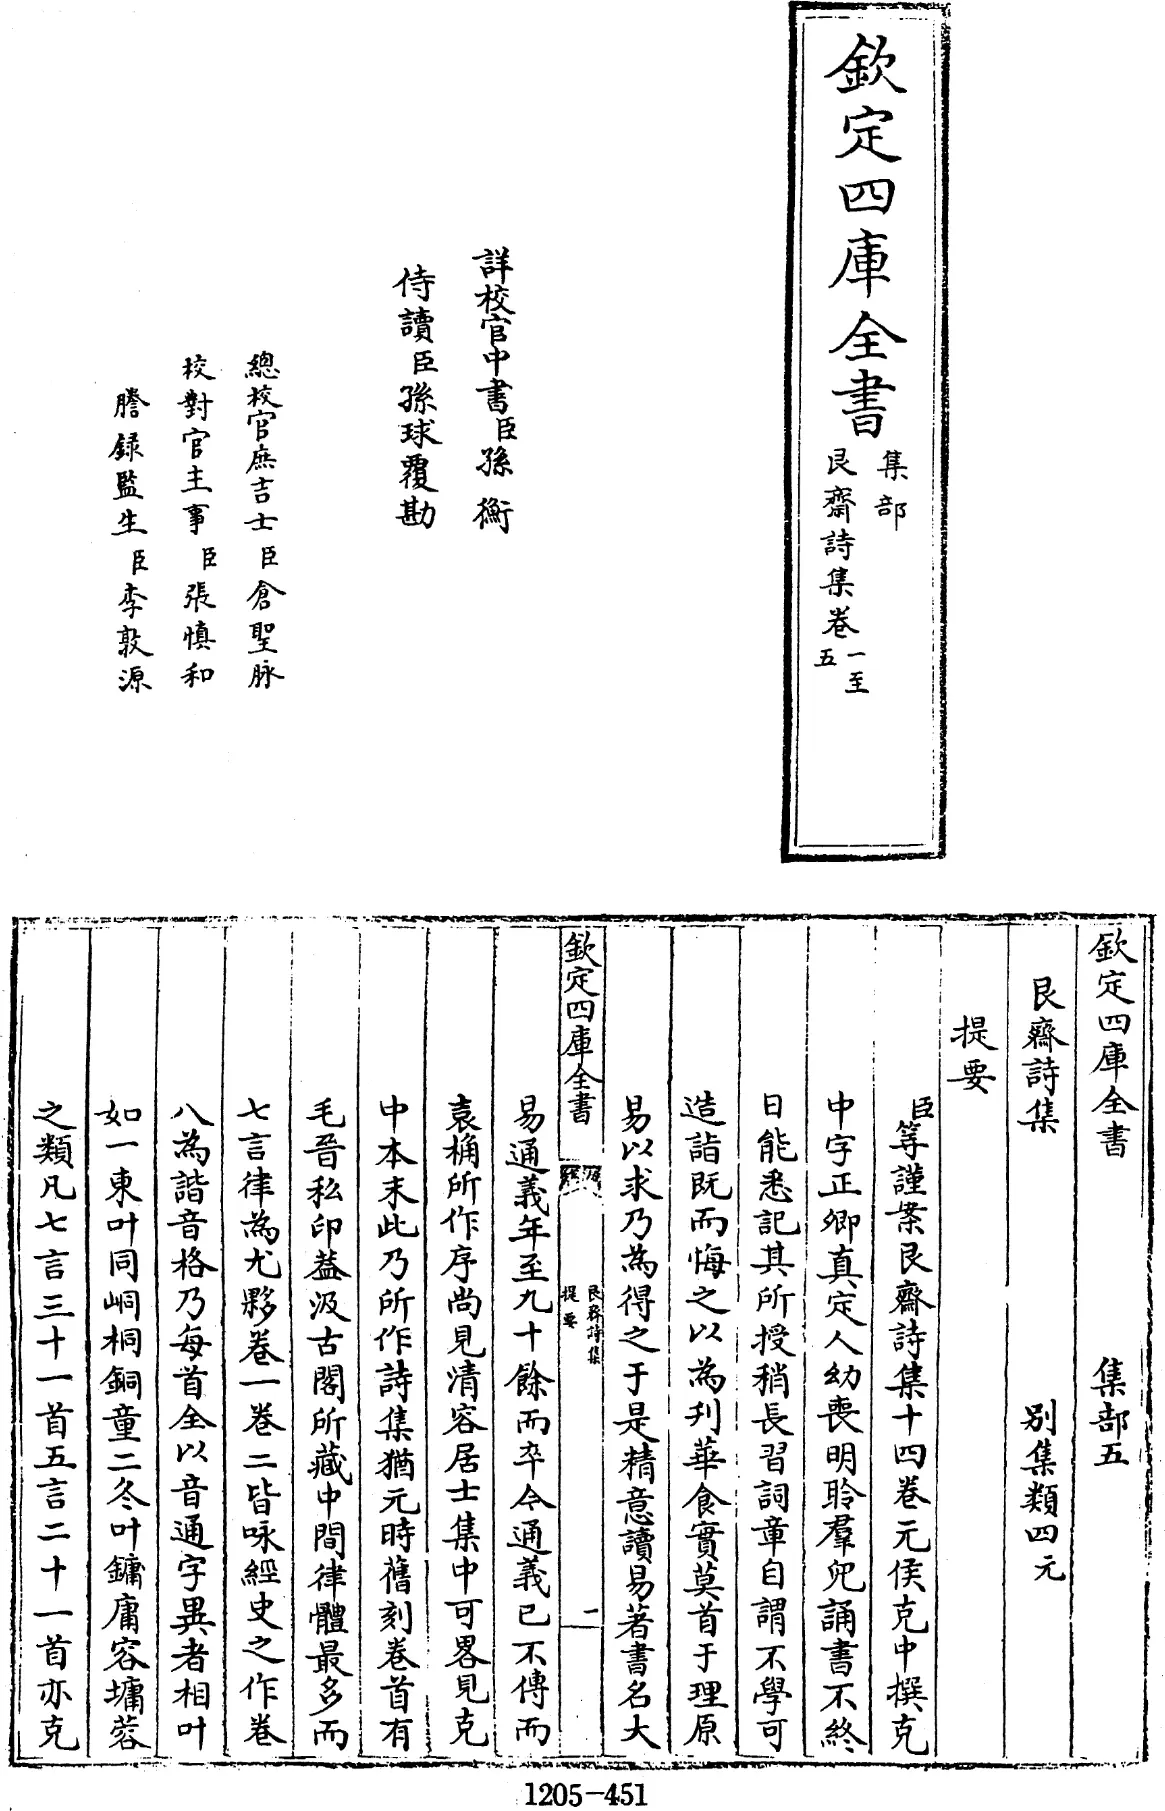 欽定四庫全書
集部
艮齋詩集卷一至五
詳校官中書臣孫衡
侍讀臣孫球覆勘
總校官庶吉士臣倉聖脉
校對官主事臣張慎和
謄録監生臣李敦源
欽定四庫全書　集部五
艮齋詩集　别集類四元
提要
臣等謹案艮齋詩集十四卷元侯克中撰克
中字正卿真定人幼喪明聆羣兒誦書不終
日能悉記其所授稍長習詞章自謂不學可
造詣既而悔之以為刋華食實莫首于理原
易以求乃為得之于是精意讀易著書名大
欽定四庫全書　艮齋詩集提要　二
易通義年至九十餘而卒今通義已不傳而
袁桷所作序尚見清容居士集中可畧見克
中本末此乃所作詩集猶元時舊刻卷首有
毛晉私印葢汲古閣所藏中間律體最多而
七言律為尤夥卷一卷二皆咏經史之作卷
八為諧音格乃每首全以音通字異者相叶
如一東叶同峒桐銅童二冬叶鏞庸容墉蓉
之類凡七言三十一首五言二十一首亦克
1205-451